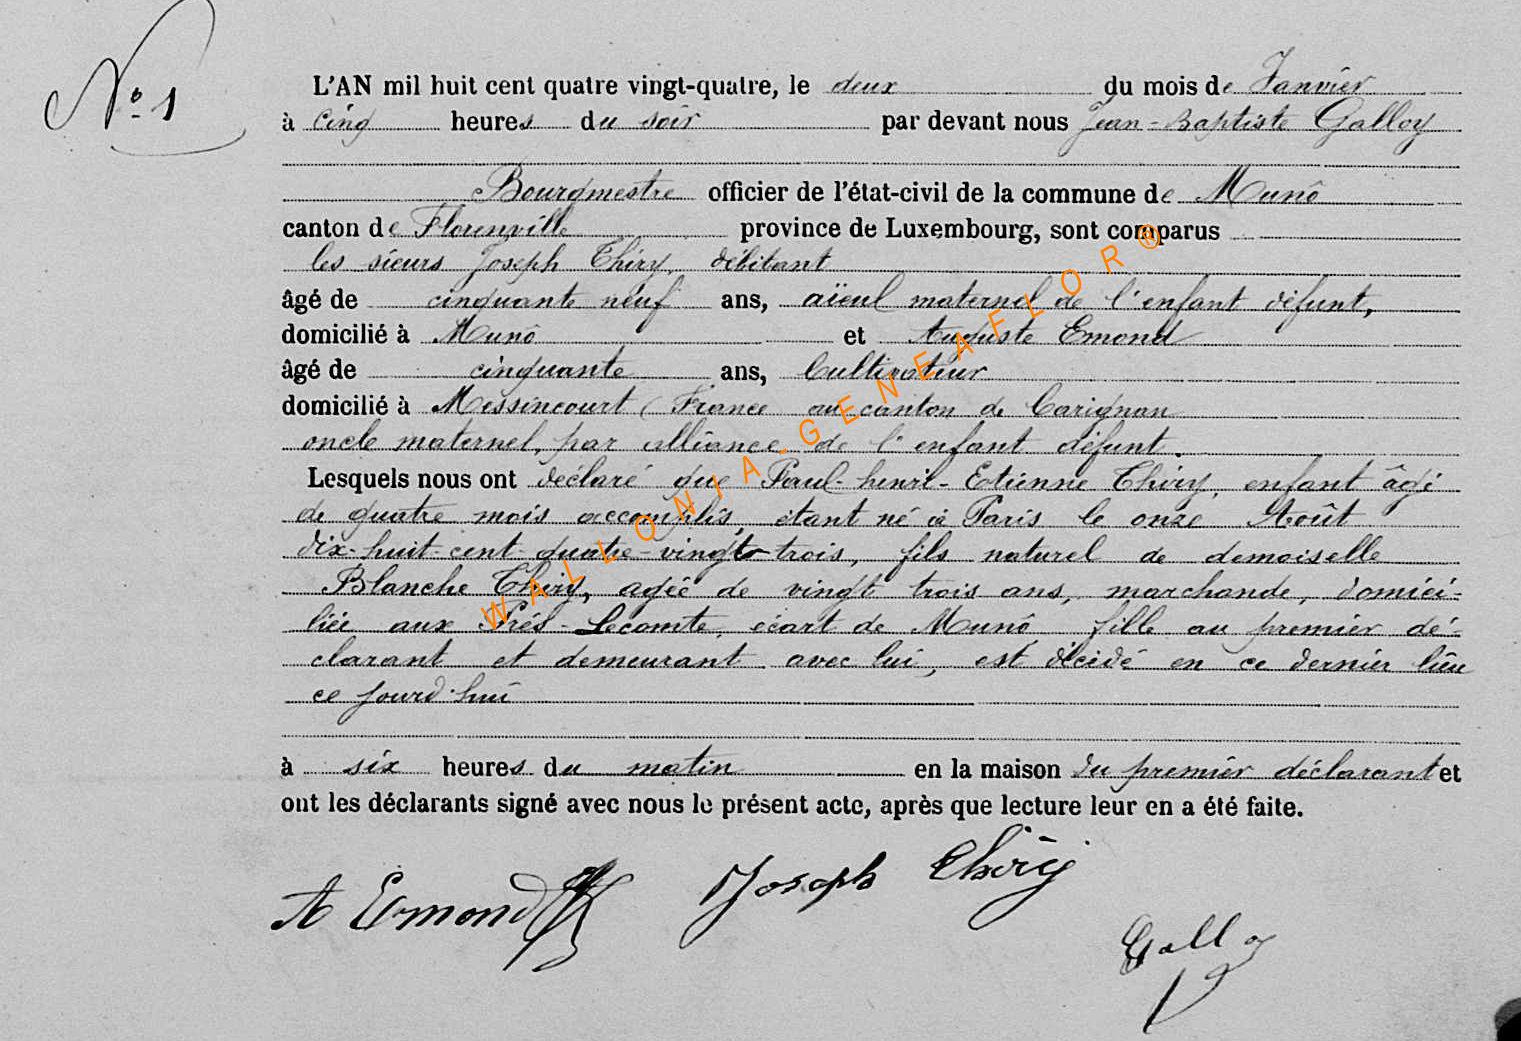 N° 1
L'AN mil huit cent quatre vingt-quatre, le deux du mois de Janvier
à cinq heures du soir par devant nous Jean-Baptiste Galloy
Bourgmestre officier de l'état-civil de la commune de Muno
canton de Florenville province de Luxembourg, sont comparus
les sieurs Joseph Thiry, débitant
âgé de cinquante neuf ans, aïeul maternel de l'enfant défunt,
domicilié à Muno et Auguste Emond
âgé de cinquante ans, Cultivateur
domicilié à Messincourt (France au canton de Carignan
oncle maternel, par alliance de l'enfant défunt.
Lesquels nous ont déclaré que Paul-henri-Etienne Thiry, enfant âgé
de quatre mois accomplis, étant né à Paris le onze Août
dix-huit-cent-quatre-vingt-trois, fils naturel de demoiselle
Blanche Thiry, agée de vingt trois ans, marchande, domici-
liée aux Prés-Lecomte, écart de Muno, fille au premier dé-
clarant et demeurant avec lui, est décidé en ce dernier lieu
ce jourd'hui
à six heures du matin en la maison du premier déclarant et
ont les déclarants signé avec nous le présent acte, après que lecture leur en a été faite.
A Emond Joseph Thiry
Galloy
WALLONIA-GENEAFLOR®